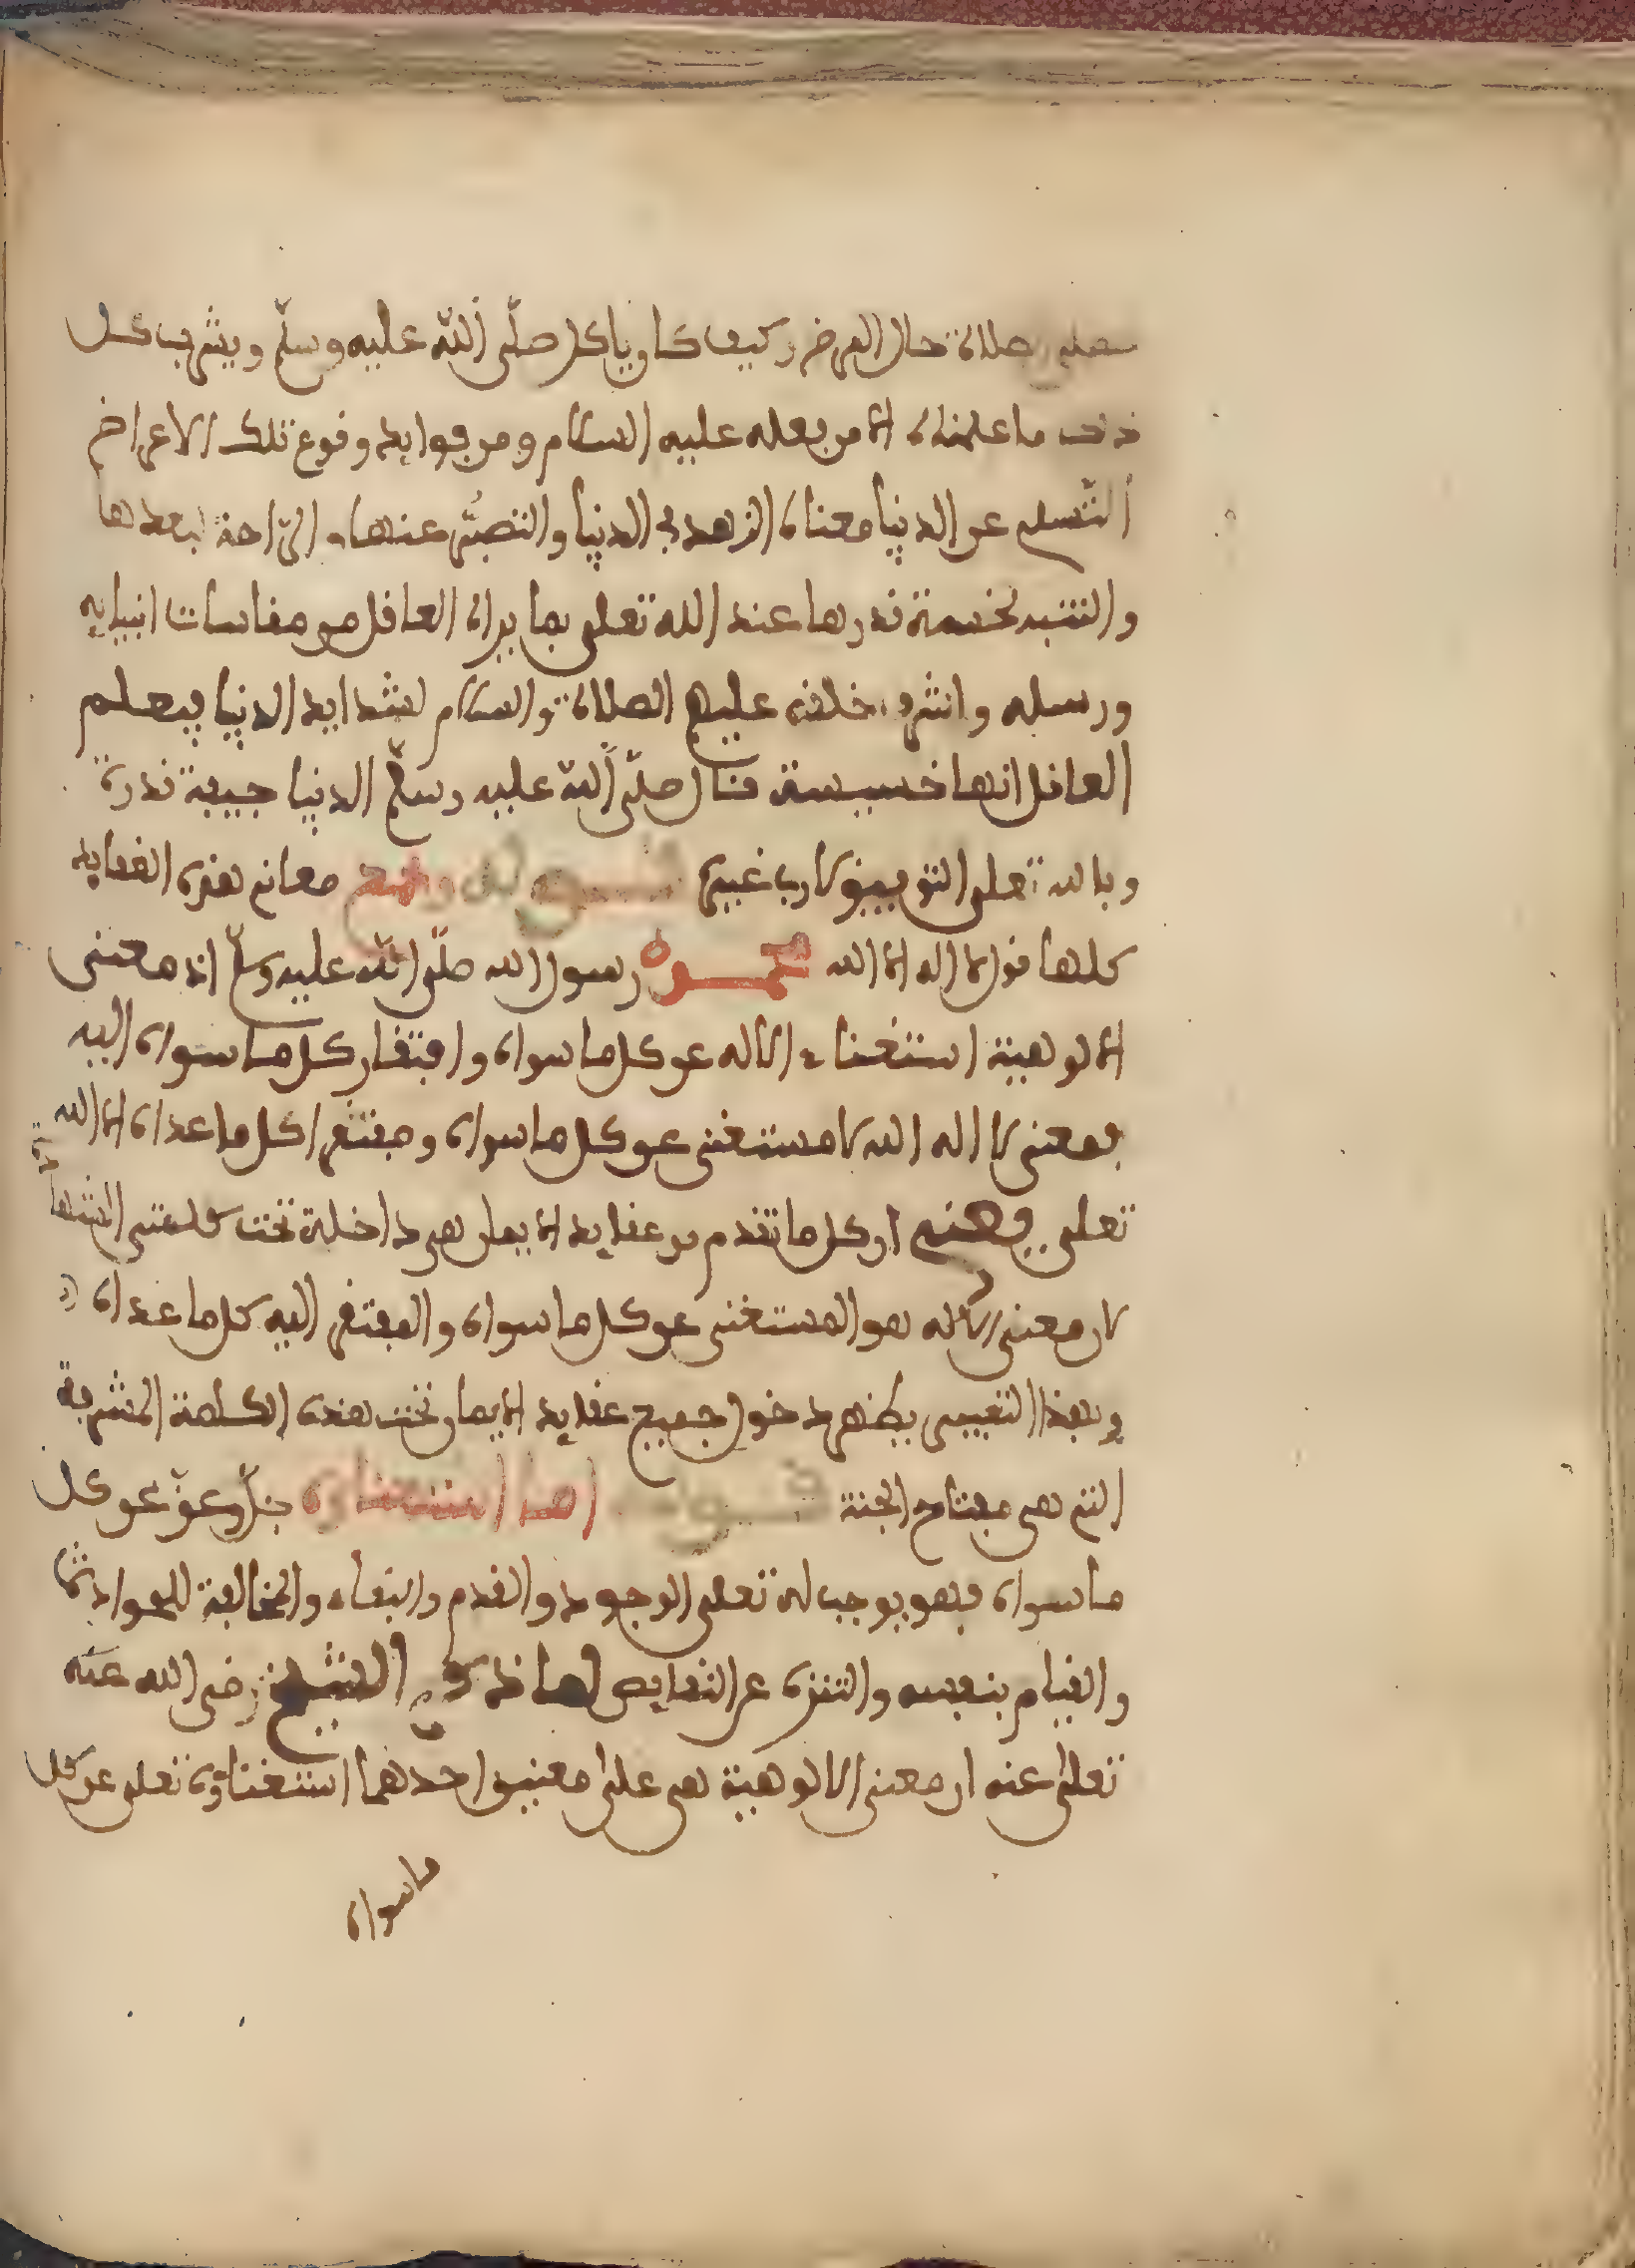 صلاة حال المرض وكيف كان ياكل صلى الله عليه وسلم ويشرب كل
ذلك ما علمناه الا من بعله عليه السلام ومن فوايد وقوع تلك الاعراض
التسلي عن الدنيا معناه الزهد في الدنيا والتصبر عنها والراحة لبعدها
والتنبه لخسة قدرها عند الله تعلى بما يراه العافل من مقاسات انبيايه
ورسله واشرف خلقه عليهم الصلاة والسلام لشدايد الدنيا فيعلم
العافل انها خسيسة فال صلى الله عليه وسلم الدنيا جيفة قذرة
وبالله تعلى التوفيق لا رب غيره قوله وجمع معاني هذه العقايد
كلها قول لا اله الا الله محمد رسول الله صلى الله عليه وسلم اذ معنى
الالوهية استغناء الاله عن كل ما سواه وافتقار كل ما سواه اليه
فمعنى لا اله الا الله لا مستغنى عن كل ما سواه ومفتقرا كل ما عداه الا الله
تعلى يعني ان كل ما تقدم من عقايد الايمان هي داخلة تحت كلمتي الشهادة
لان معنى الاله هو المستغنى عن كل ما سواه والمفتقر اليه كل ما عداه
وبهذا التفسير يظهر دخول جميع عقايد الايمان تحت هذه الكلمة المشرفة
التي هي مفتاح الجنة قوله اما استغناؤه جل وعز عن كل
ما سواه فهو يوجب له تعلى الوجود والقدم والبقاء والمخالفة للحوادث
والقيام بنفسه والتنزه عن النقايص لما ذكر الشيخ رضي الله عنه
تعلى عنه ان معنى الالوهية هي على معنيين احدهما استغناؤه تعلى عن كل
ما سواه